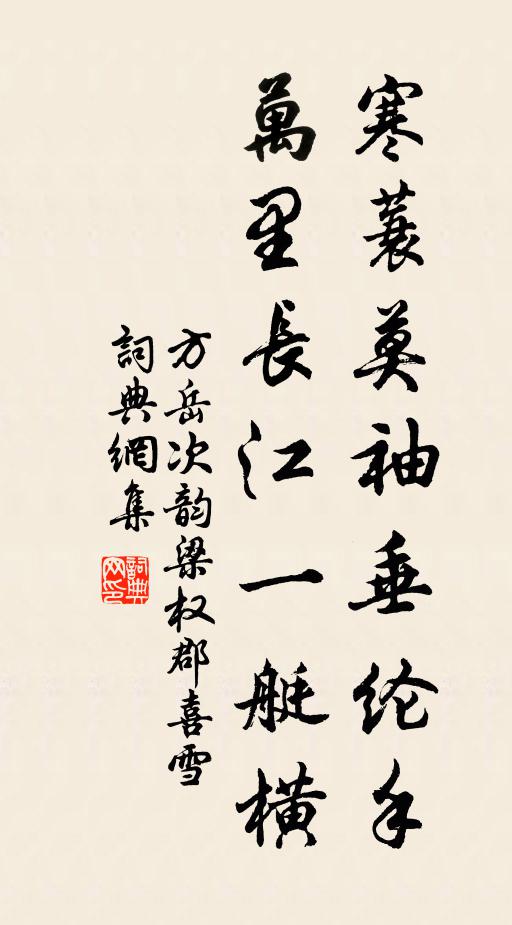 寒蓑莫袖垂纶手
萬里長江一艇橫
方岳次韵梁权郡喜雪
詞典網集
詞典网印